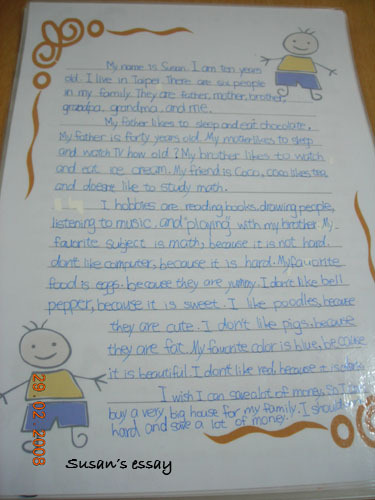 My name is Susan. I am ten years
old. I live in Taipei. There are six people
in my family. They are father, mother, brother,
grandpa, grandma, and me.
My father likes to sleep and eat chocolate.
My father is forty years old. My mother likes to sleep
and watch TV how old? My brother likes to watch
and eat ice cream. My friend is Coco, coco likes
and doesn't like to study math.
I hobbies are reading books, drawing people,
listening to music, and "playing" with my brother. My
favorite subject is math, because it is not hard. I
don't like computer, because it is hard. My favorite
food is eggs, because they are yummy. I don't like bell
pepper, because it is sweet. I like poodles, because
they are cute. I don't like pigs, because
they are fat. My favorite color is blue, because
it is beautiful. I don't like red, because it is
I wish I can save lot of money, So I can
buy a very, big house for my family. I should
hard and save a lot of money.
29.02.2008
Susan's essay